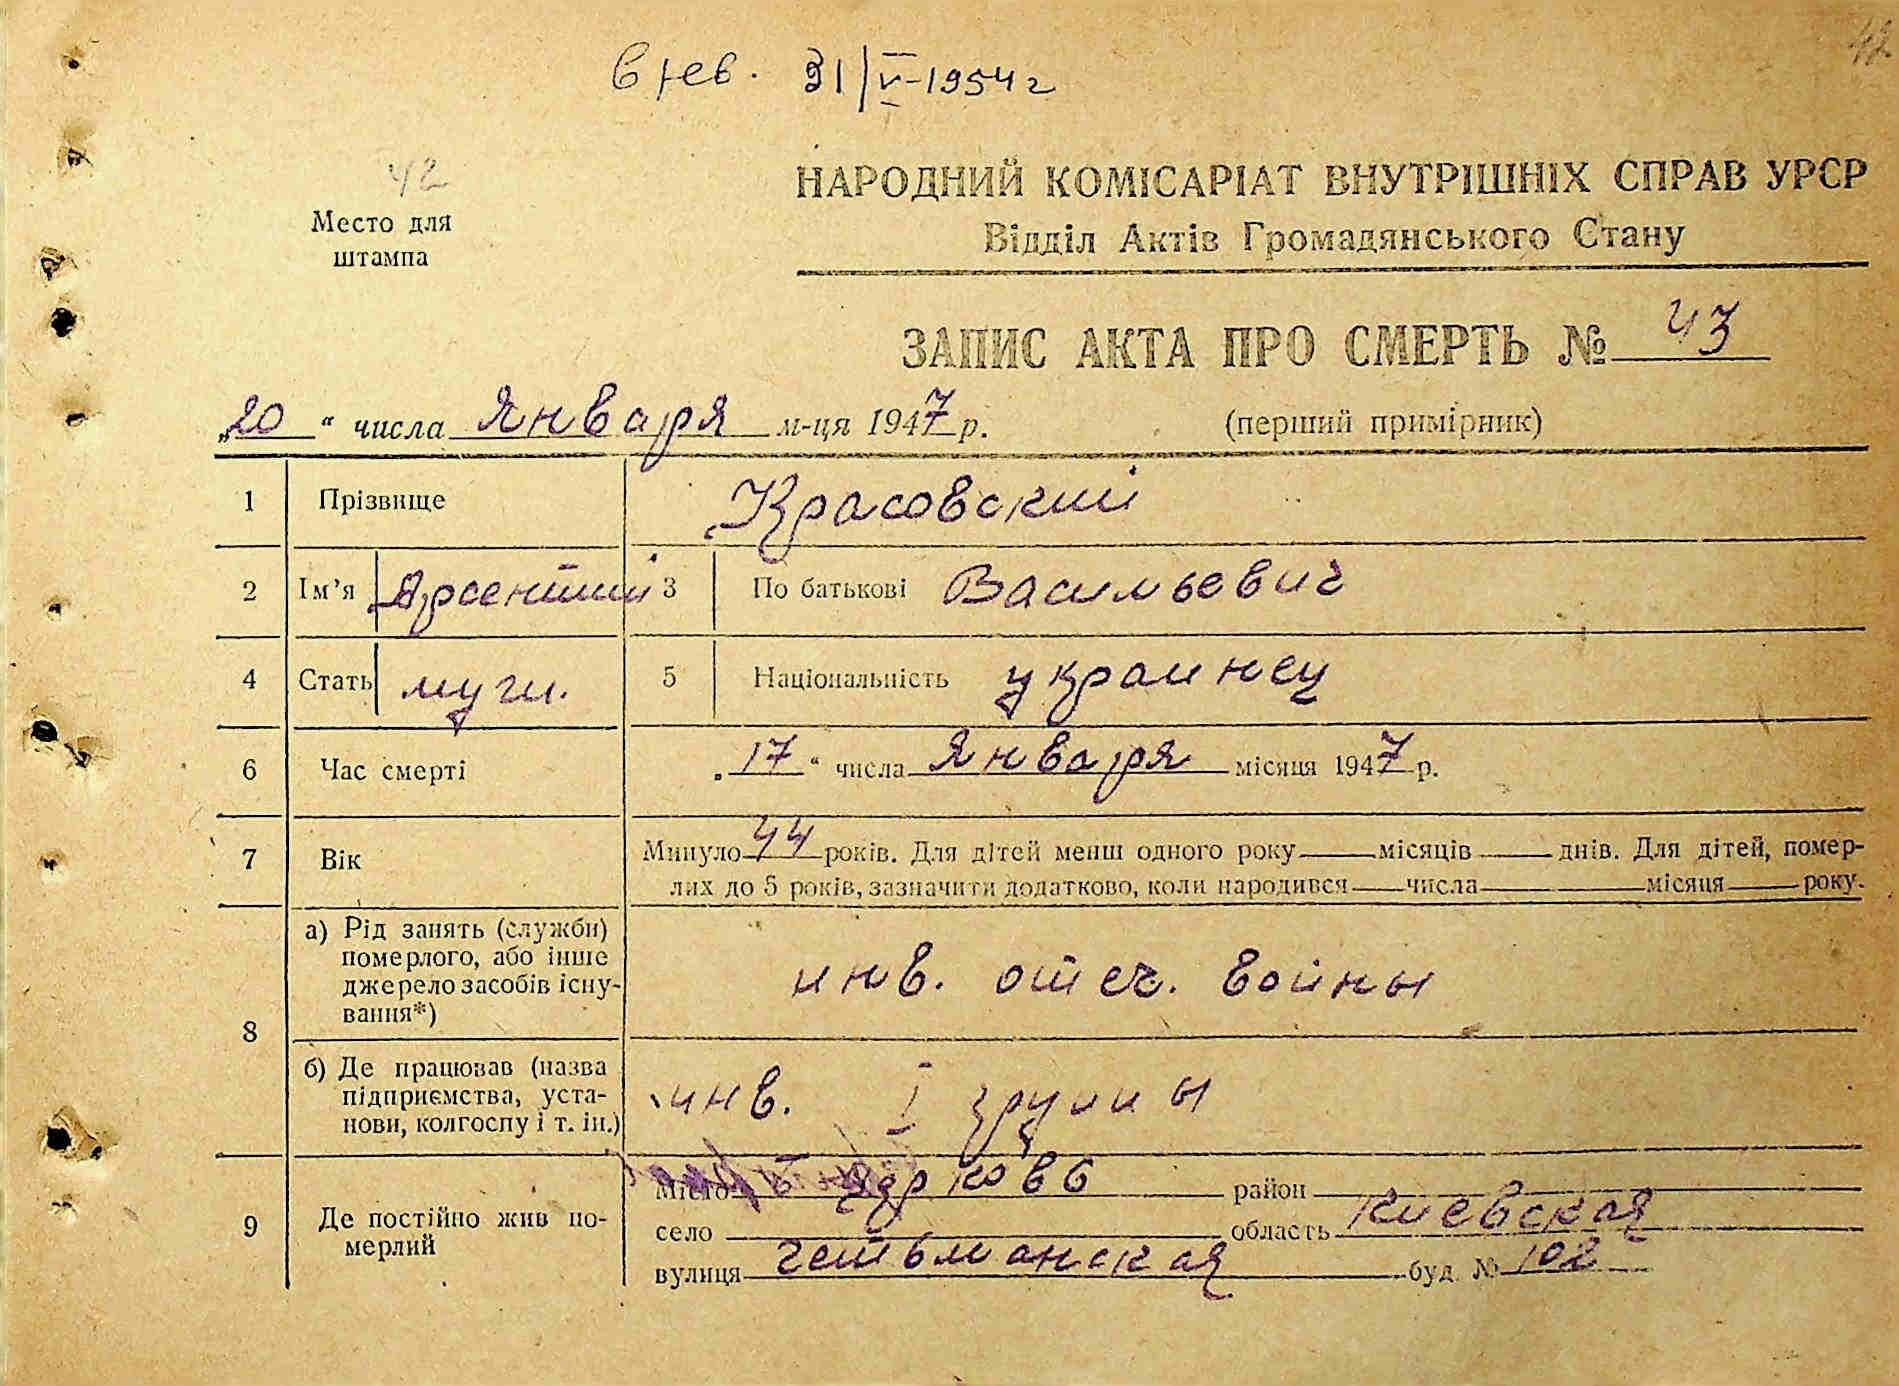 31/V-1954 г
42
42
Место для
штампа
НАРОДНИЙ КОМІСАРІАТ ВНУТРІШНІХ СПРАВ УРСР
Відділ Актів Громадянського Стану
ЗАПИС АКТА ПРО СМЕРТЬ № 43
„20" числа Января м-ця 1947 р. (перший примірник)
1 Прізвище Красовский
2 Ім'я Арсентий 3 По батькові Васильевич
4 Стать муж. 5 Національність украинец
6 Час смерті „17" числа Января місяця 1947 р.
7 Вік Минуло 44 років. Для дітей менш одного року місяців днів. Для дітей, помер-
лих до 5 років, зазначити додатково, коли народився числа місяця року.
8 а) Рід занять (служби)
померлого, або інше
джерело засобів існу-
вання*)
инв. отеч. войны
б) Де працював (назва
підприємства, уста-
нови, колгоспу і т. ін.)
инв. I группы
9 Де постійно жив по-
мерлий
Місто район
село область Киевская
вулиця гетьманская буд. № 102